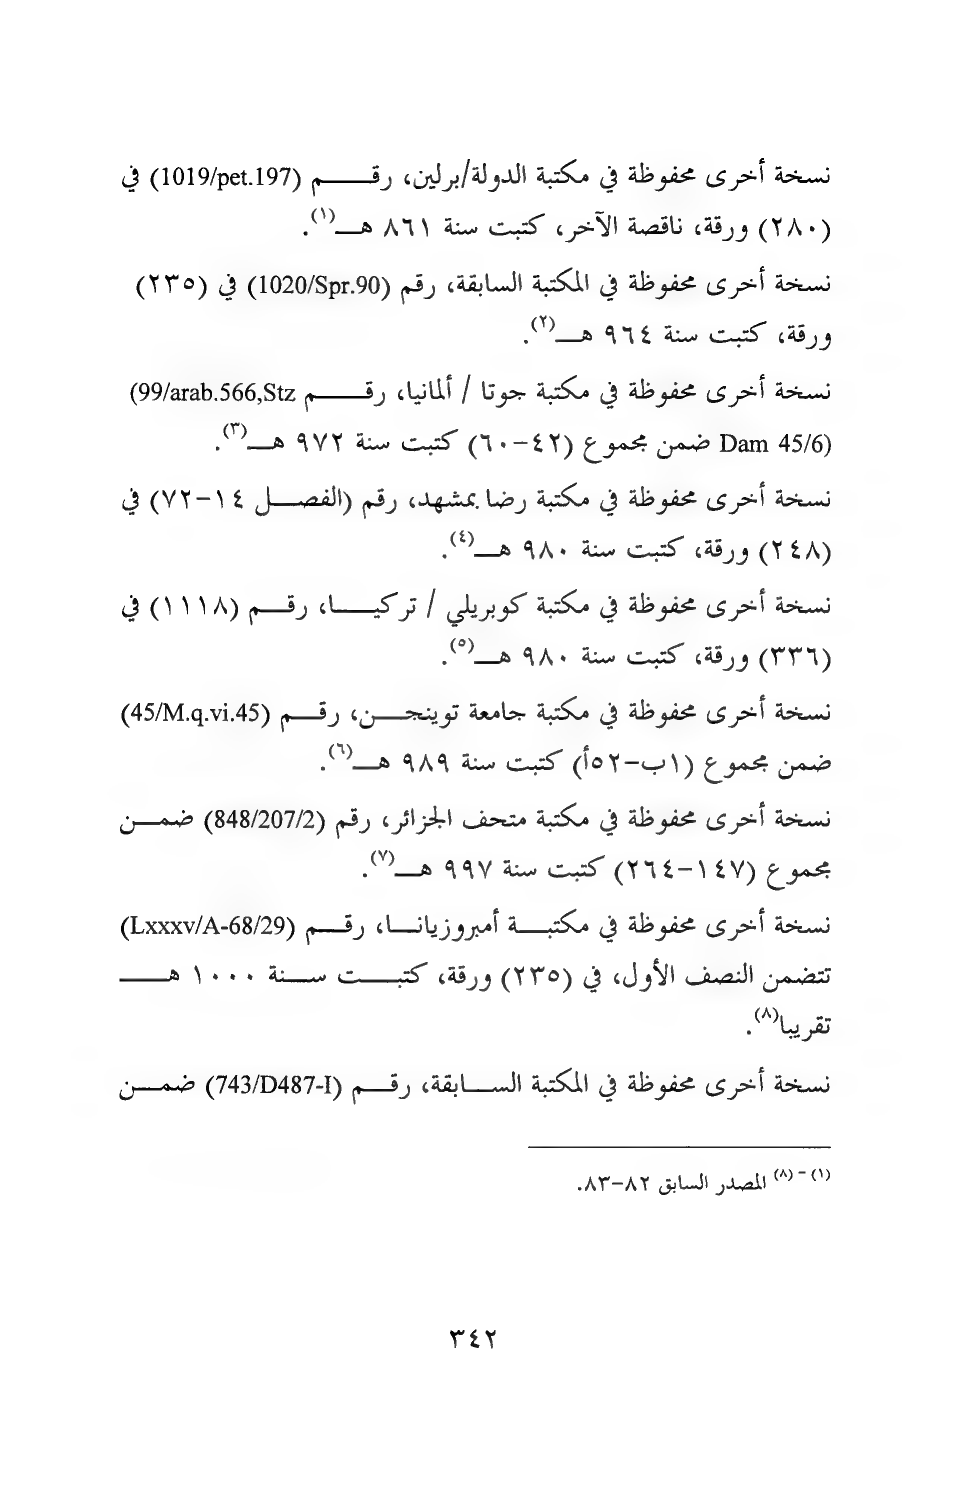 نسخة أخرى محفوظة في مكتبة الدولة/برلين، رقـــــم (1019/pet.197) في
(٢٨٠) ورقة، ناقصة الآخر، كتبت سنة ٨٦١ هـــ(١).
نسخة أخرى محفوظة في المكتبة السابقة، رقم (1020/Spr.90) في (٢٣٥)
ورقة، كتبت سنة ٩٦٤ هـــ(٢).
نسخة أخرى محفوظة في مكتبة جوتا / ألمانيا، رقـــــم 99/arab.566,Stz)
Dam 45/6) ضمن مجموع (٤٢-٦٠) كتبت سنة ٩٧٢ هـــ(٣).
نسخة أخرى محفوظة في مكتبة رضا بمشهد، رقم (الفصـــل ١٤-٧٢) في
(٢٤٨) ورقة، كتبت سنة ٩٨٠ هـــ(٤).
نسخة أخرى محفوظة في مكتبة كوبريلي / تركيـــا، رقـــم (١١١٨) في
(٣٣٦) ورقة، كتبت سنة ٩٨٠ هـــ(٥).
نسخة أخرى محفوظة في مكتبة جامعة توينجـــن، رقـــم (45/M.q.vi.45)
ضمن مجموع (١ب-٥٢أ) كتبت سنة ٩٨٩ هـــ(٦).
نسخة أخرى محفوظة في مكتبة متحف الجزائر، رقم (848/207/2) ضمـــن
مجموع (١٤٧-٢٦٤) كتبت سنة ٩٩٧ هـــ(٧).
نسخة أخرى محفوظة في مكتبـــة أمبروزيانـــا، رقـــم (Lxxxv/A-68/29)
تتضمن النصف الأول، في (٢٣٥) ورقة، كتبـــت ســـنة ١٠٠٠ هـــــ
تقريبا(٨).
نسخة أخرى محفوظة في المكتبة الســـابقة، رقـــم (743/D487-I) ضمـــن
(١) - (٨) المصدر السابق ٨٢-٨٣.
٣٤٢